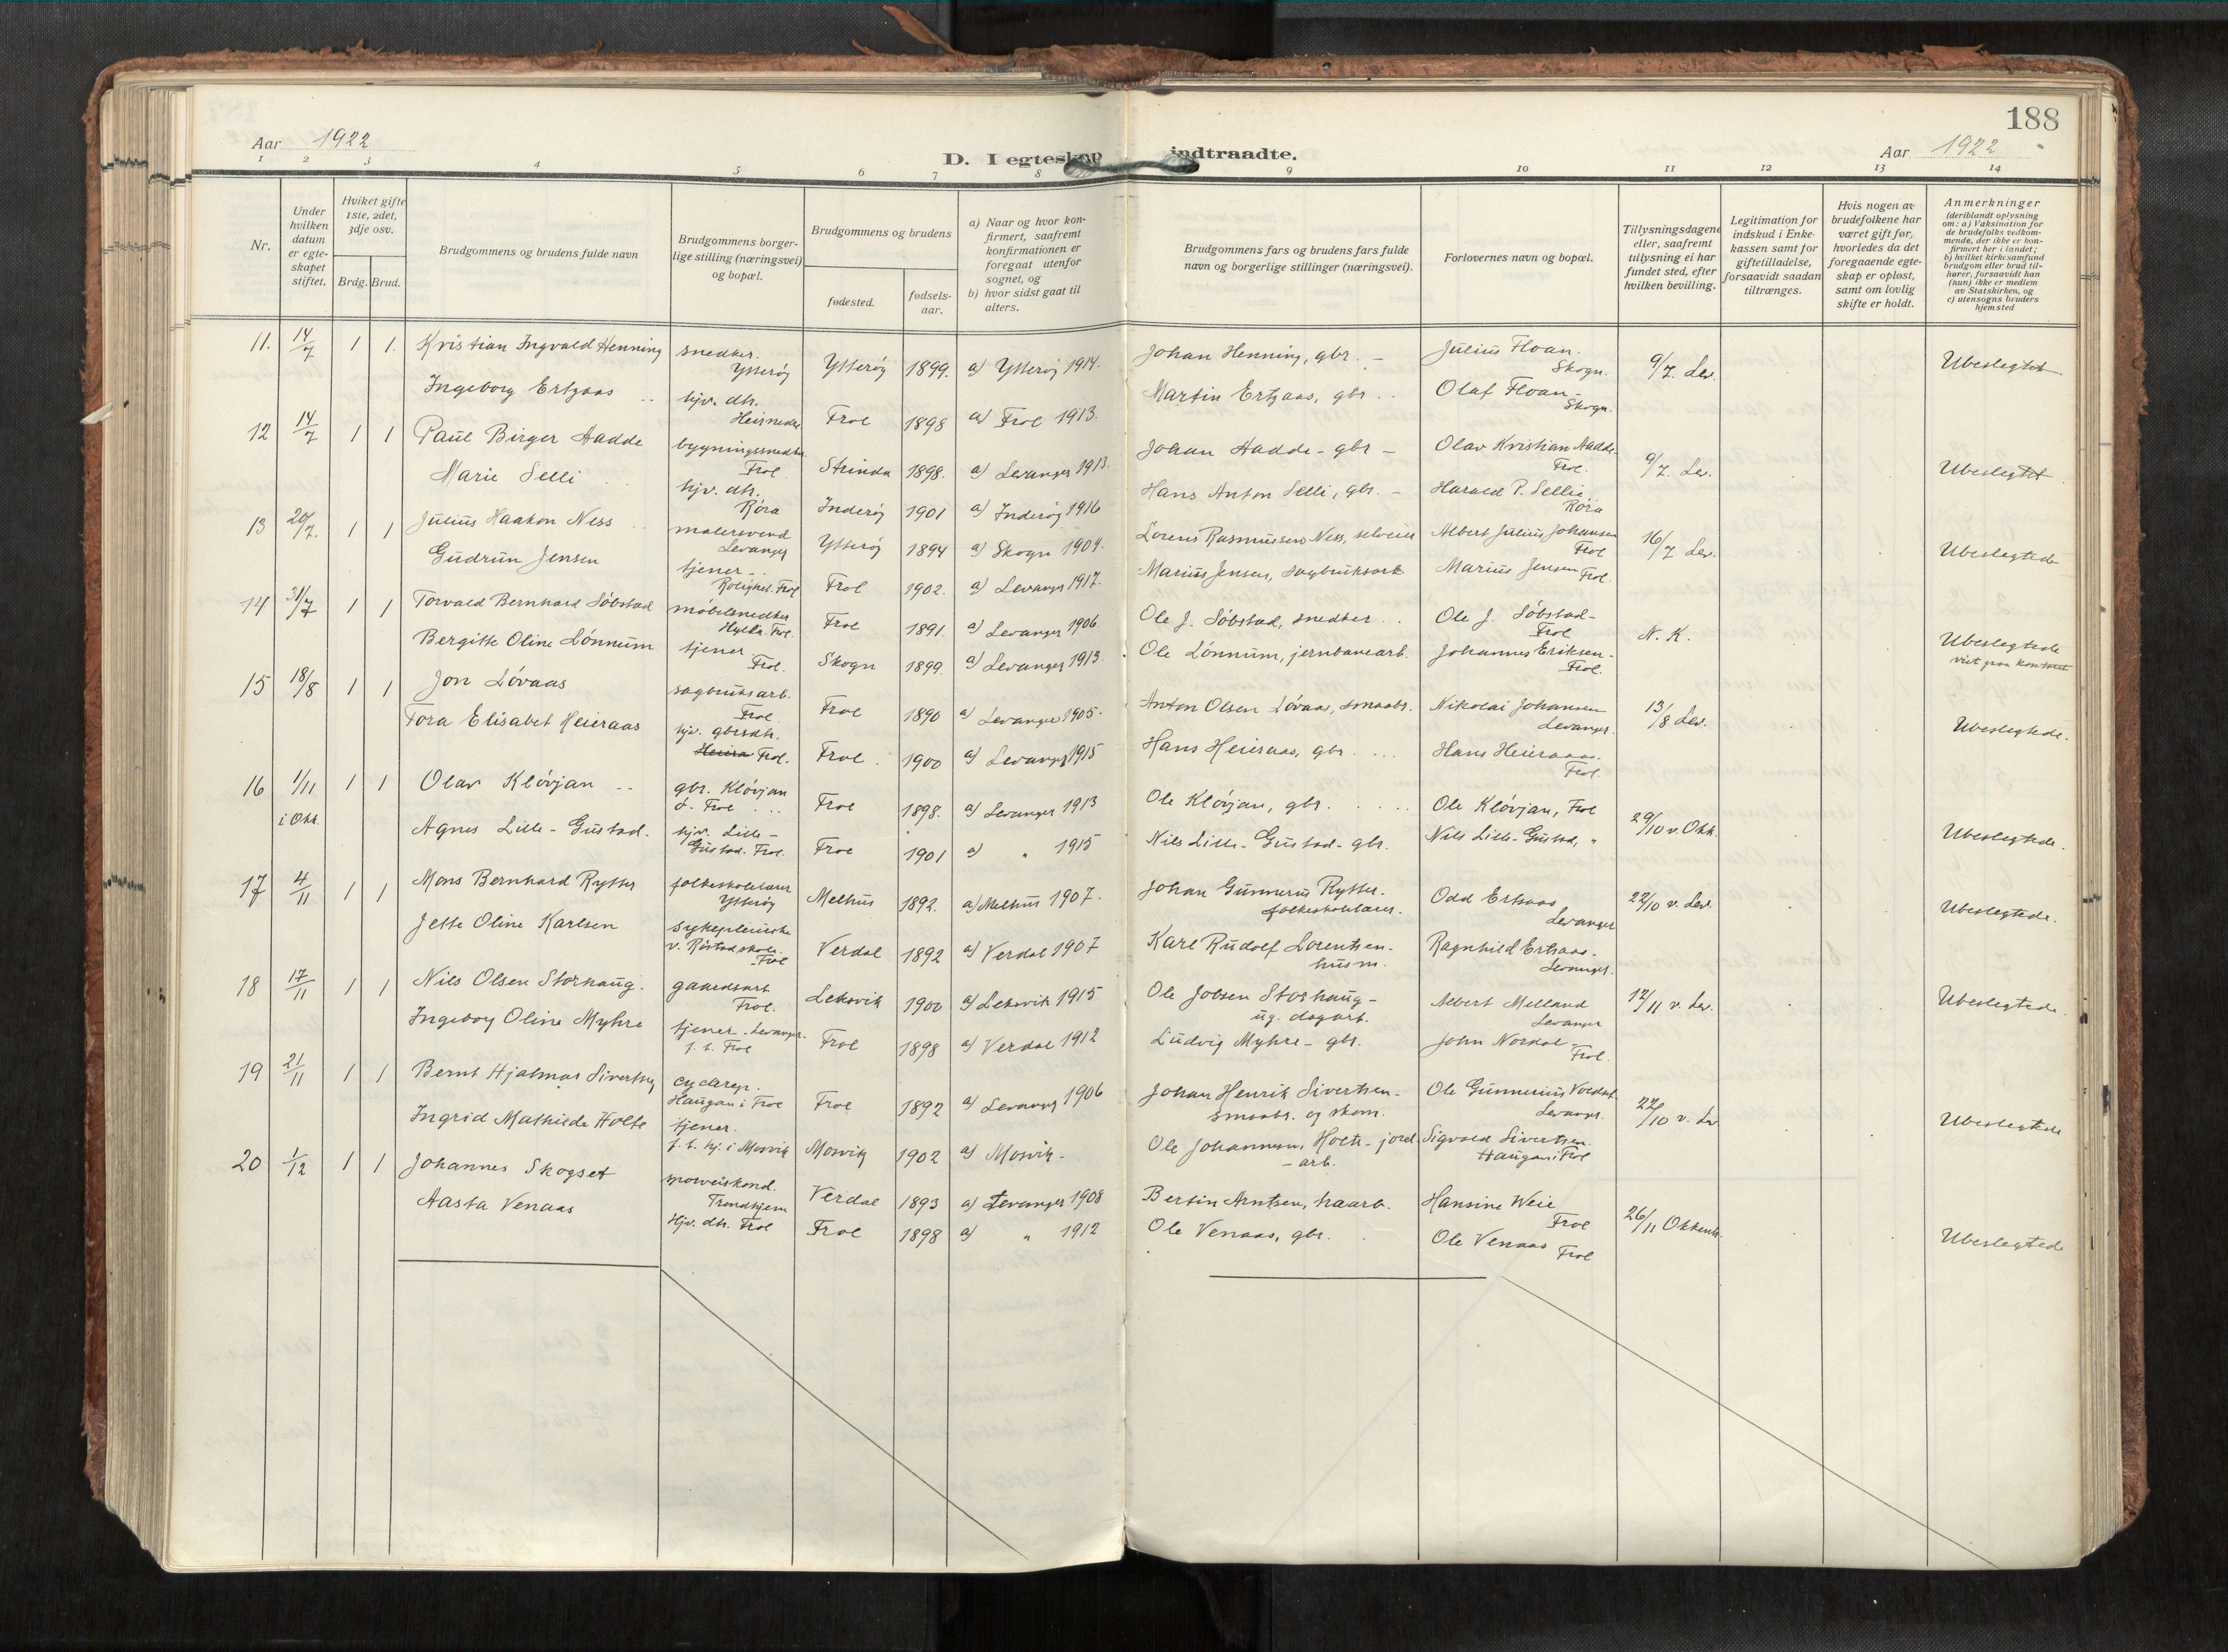 188
Aar 1922
D. I egteskap indtraadte.
Aar 1922
1 2 3 4 5 6 7 8 9 10 11 12 13 14
Nr.
Under hvilken datum er egteskapet stiftet.
Hviket gifte 1ste, 2det, 3dje osv.
Brdg. Brud.
Brudgommens og brudens fulde navn
Brudgommens borgerlige stilling (næringsvei) og bopæl.
Brudgommens og brudens
fødested.
fødselsaar.
a) Naar og hvor konfirmert, saafremt konfirmationen er foregaat utenfor sognet, og
b) hvor sidst gaat til alters.
Brudgommens fars og brudens fars fulde navn og borgerlige stillinger (næringsvei).
Forlovernes navn og bopæl.
Tillysningsdagene eller, saafremt tillysning ei har fundet sted, efter hvilken bevilling.
Legitimation for indskud i Enkekassen samt for giftetilladelse, forsaavidt saadan tiltrænges.
Hvis nogen av brudefolkene har været gift før, hvorledes da det foregaaende egteskap er opløst, samt om lovlig skifte er holdt.
Anmerkninger (deriblandt oplysning om: a) Vaksination for de brudefolks vedkommende, der ikke er konfirmert her i landet; b) hvilket kirkesamfund brudgom eller brud tilhører, forsaavidt han (hun) ikke er medlem av Statskirken, og c) utensogns bruders hjemsted
11. 14/7 1 1. Kristian Ingvald Henning snedker. Ytterøy Ytterøy 1899. a) Ytterøy 1914. Johan Henning, gbr. Julius Floan. Skogn. 9/7. Lev. Ubeslegtet
Ingeborg Ertzaas hjv. dtr. Frol 1898 a) Frol 1913. Martin Ertzaas, gbr. Olaf Floan Skogn.
12 14/7 1 1 Paul Birger Aadde bygningssnedker Frol Strinda 1898. a) Levanger 1913. Johan Aadde - gbr - Olav Kristian Aadde Frol. 9/7. Lev. Ubeslegtet
Marie Selli hjv. dtr. Røra Inderøy 1901 a) Inderøy 1916 Hans Anton Selli, gbr. - Harald P. Sellie Røra
13 20/7. 1 1 Julius Haakon Ness malersvend Levanger Ytterøy 1894 a) Skogn 1909. Lorens Rasmussen Ness, Albert Julius Johansen Frol 16/7 Lev. Ubeslegtede
Gudrun Jensen tjener Rolighet. Frol Frol 1902. a) Levanger 1917. Marius Jensen, sagbruksarb Marius Jensen Frol.
14 31/7 1 1 Torvald Bernhard Søbstad møbelsnedker Frol. Frol 1891. a) Levanger 1906 Ole J. Søbstad, snedker Ole J. Søbstad - Frol N. K. Ubeslegtede
Bergitte Oline Lønnum tjener Frol. Skogn 1899. a) Levanger 1913. Ole Lønnum, jernbanearb. Johannes Eriksen - Frol. viet paa kontoret
15 18/8 1 1 Jon Løvaas sagbruksarb. Frol Frol 1890 a) Levanger 1905. Anton Olsen Løvaas, smaabr. Nikolai Johansen Levanger. 13/8 Lev. Ubeslegtede.
Tora Elisabet Heieraas hjv. gbrsdtr. Frol. Frol. 1900 a) Levanger 1915 Hans Heieraas, gbr. Hans Heieraas. Frol.
16 1/11 i Okk. 1 1 Olav Kløvjan gbr. Kløvjan Frol Frol 1898. a) Levanger 1913 Ole Kløvjan, gbr. Ole Kløvjan, Frol 29/10 v. Okk. Ubeslegtede.
Agnes Lille-Gustad. hjv. Lille-Gustad. Frol. Frol 1901 a) " 1915 Nils Lille-Gustad - gbr. Nils Lille-Gustad, "
17 4/11 1 1 Mons Bernhard Rytter folkeskolelærer Ytterøy Melhus 1892. a) Melhus 1907. Johan Gunnerus Rytter. folkeskolelærer. Odd Ertsaas Levanger 22/10 v. Lev. Ubeslegtede.
Jette Oline Karlsen sykepleierske v. Røstad skole. Frol Verdal 1892 a) Verdal 1907 Karl Rudolf Lorentsen - husm. Ragnhild Ertsaas - Levanger.
18 17/11 1 1 Nils Olsen Storhaug. gaardsarb Frol. Leksvik 1900 a) Leksvik 1915 Ole Jobsen Storhaug - ug. dagarb. Albert Melland Levanger 12/11 v. Lev. Ubeslegtede.
Ingeborg Oline Myhre tjener. Levanger. f. t. Frol Frol 1898 a) Verdal 1912 Ludvig Myhre - gbr. John Nordal - Frol.
19 21/11 1 1 Bernt Hjalmar Sivertsen cyclerep. Haugan i Frol Frol 1892 a) Levanger 1906 Johan Henrik Sivertsen - smaabr. og skom. Ole Gunnerius Levanger. 22/10 v. Lev Ubeslegtede
Ingrid Mathilde Holte tjener. f. t. hj. i Mosvik Mosvik 1902 a) Mosvik. Ole Johannesen Holte - jord. - arb. Sigvald Sivertsen. Haugan i Frol
20 1/12 1 1 Johannes Skogset sporveiskond. Trondhjem Verdal 1893 a) Levanger 1908 Bertin Arntsen, Hansine Weie Frol 26/11 Okkenh. Ubeslegtede
Aasta Venaas Hjv. dtr. Frol Frol 1898 a) " 1912 Ole Venaas, gbr. Ole Venaas Frol